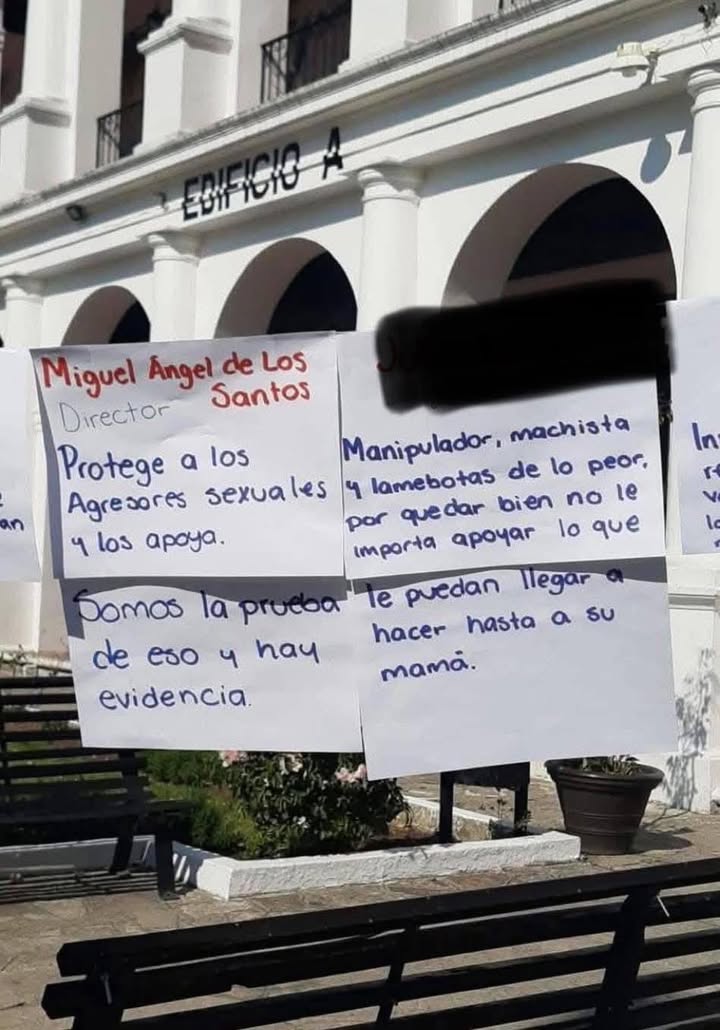 EDIFICIO A
Miguel Ángel de Los
Santos
Director
Protege a los
Agresores sexuales
y los apoya.
Somos la prueba
de eso y hay
evidencia.
Manipulador, machista
y lamebotas de lo peor,
por quedar bien no le
importa apoyar lo que
le puedan llegar a
hacer hasta a su
mamá.
an
In